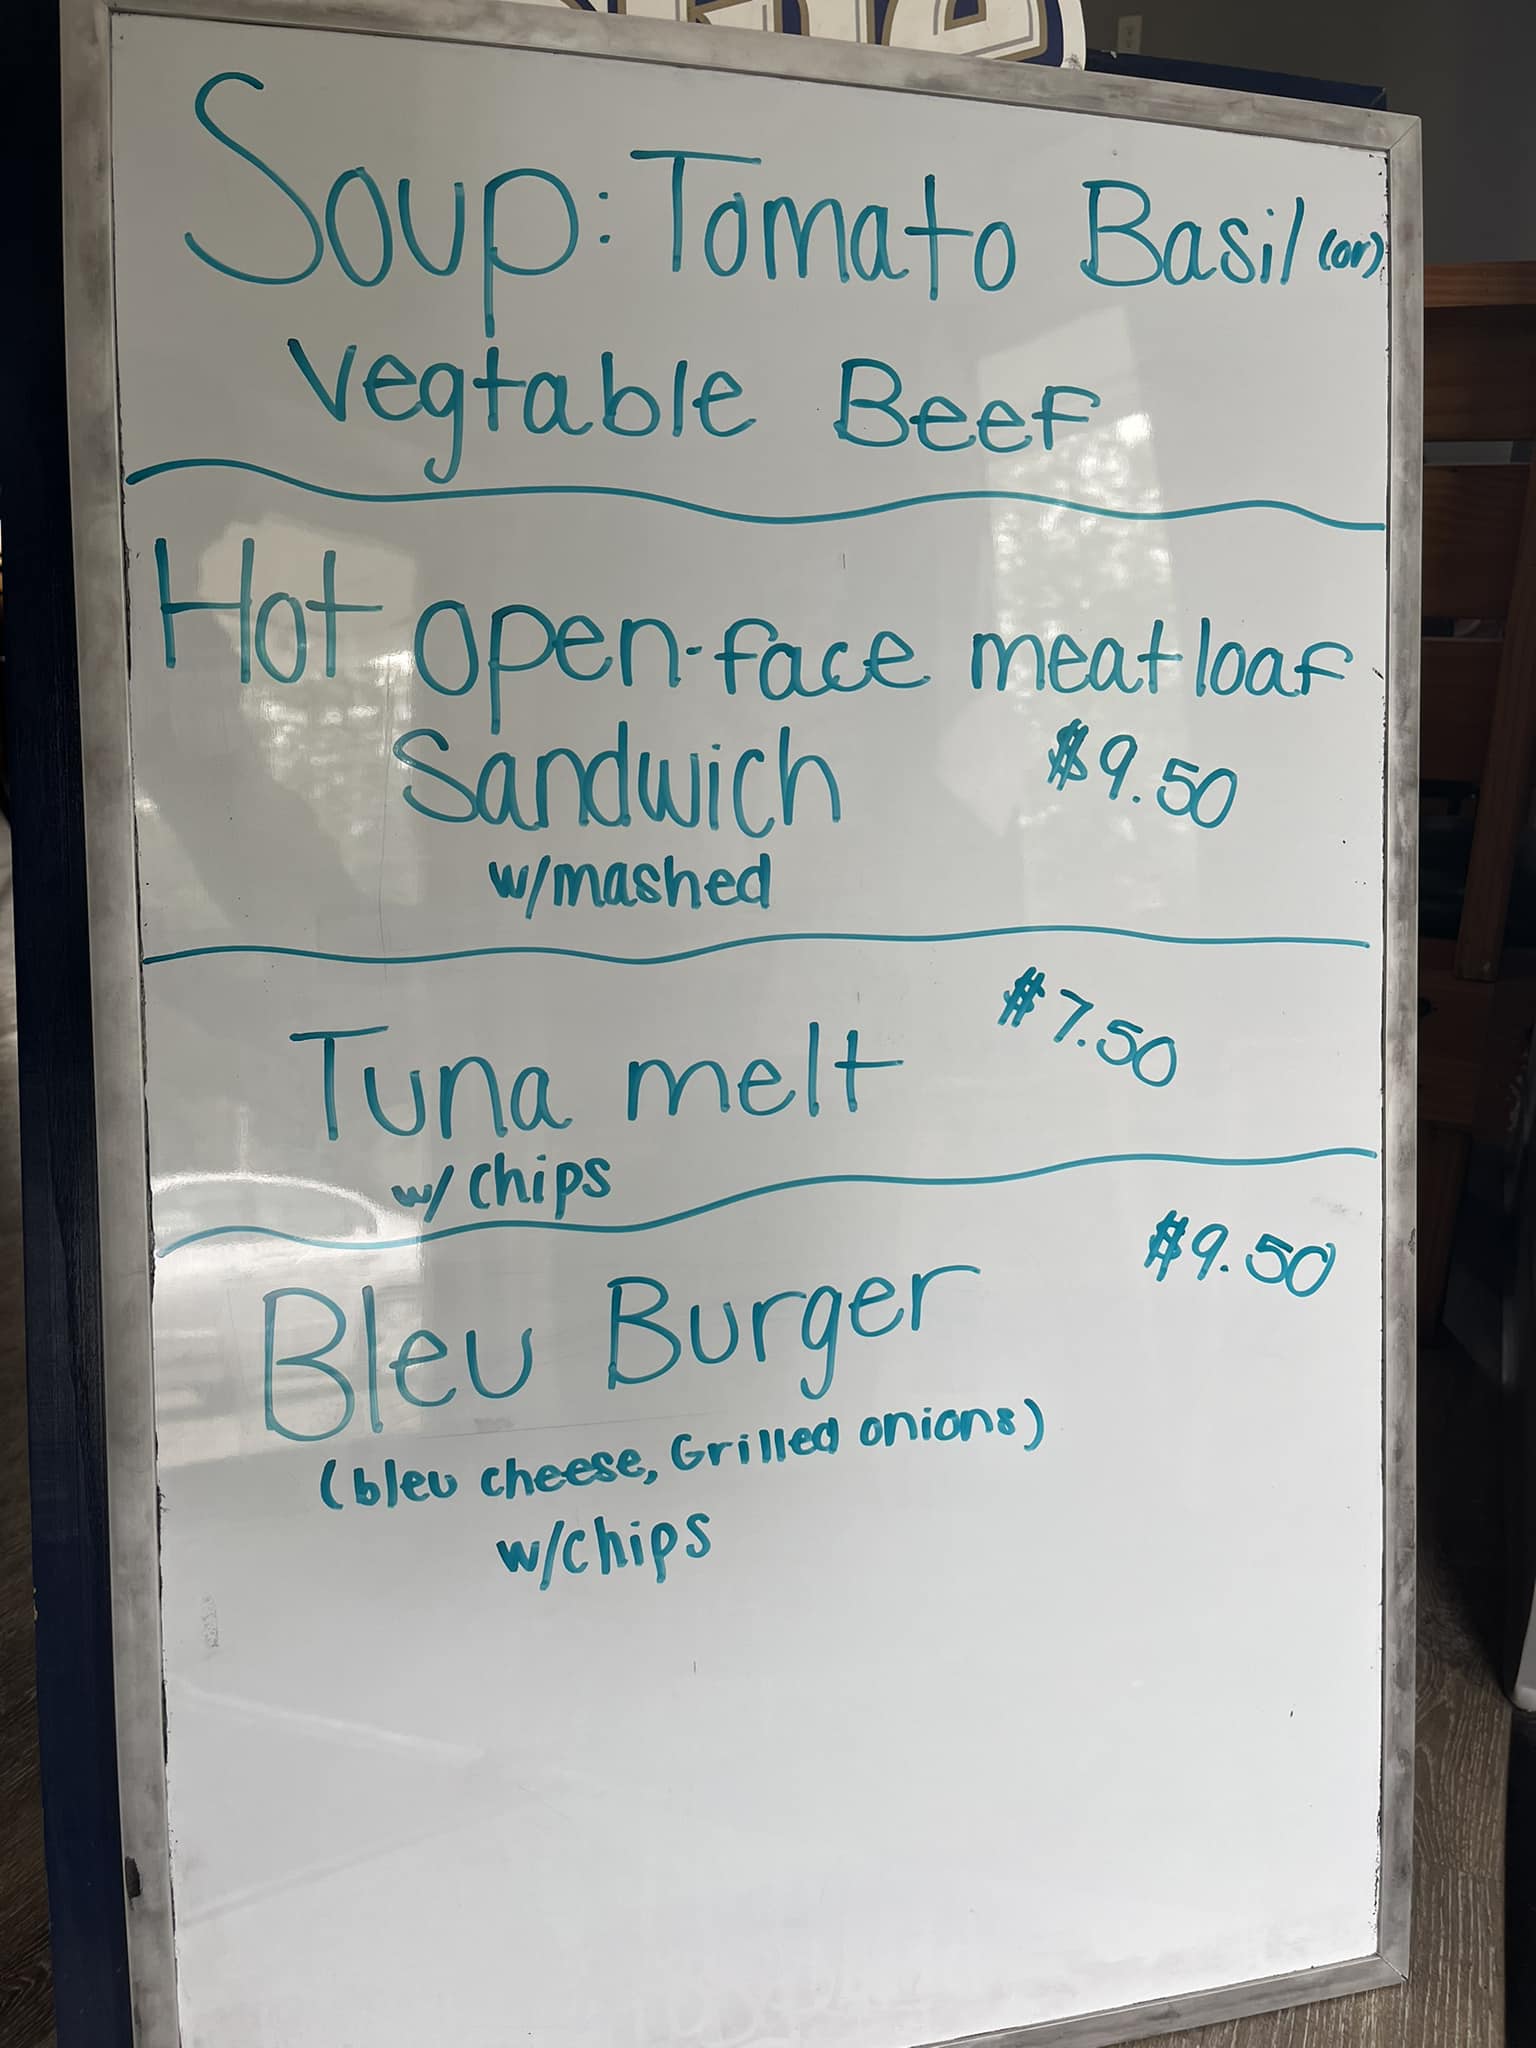 Soup: Tomato Basil (or)
Vegtable Beef
Hot open-face meatloaf
Sandwich $9.50
w/mashed
Tuna melt $7.50
w/ chips
Bleu Burger $9.50
(bleu cheese, Grilled onions)
w/chips